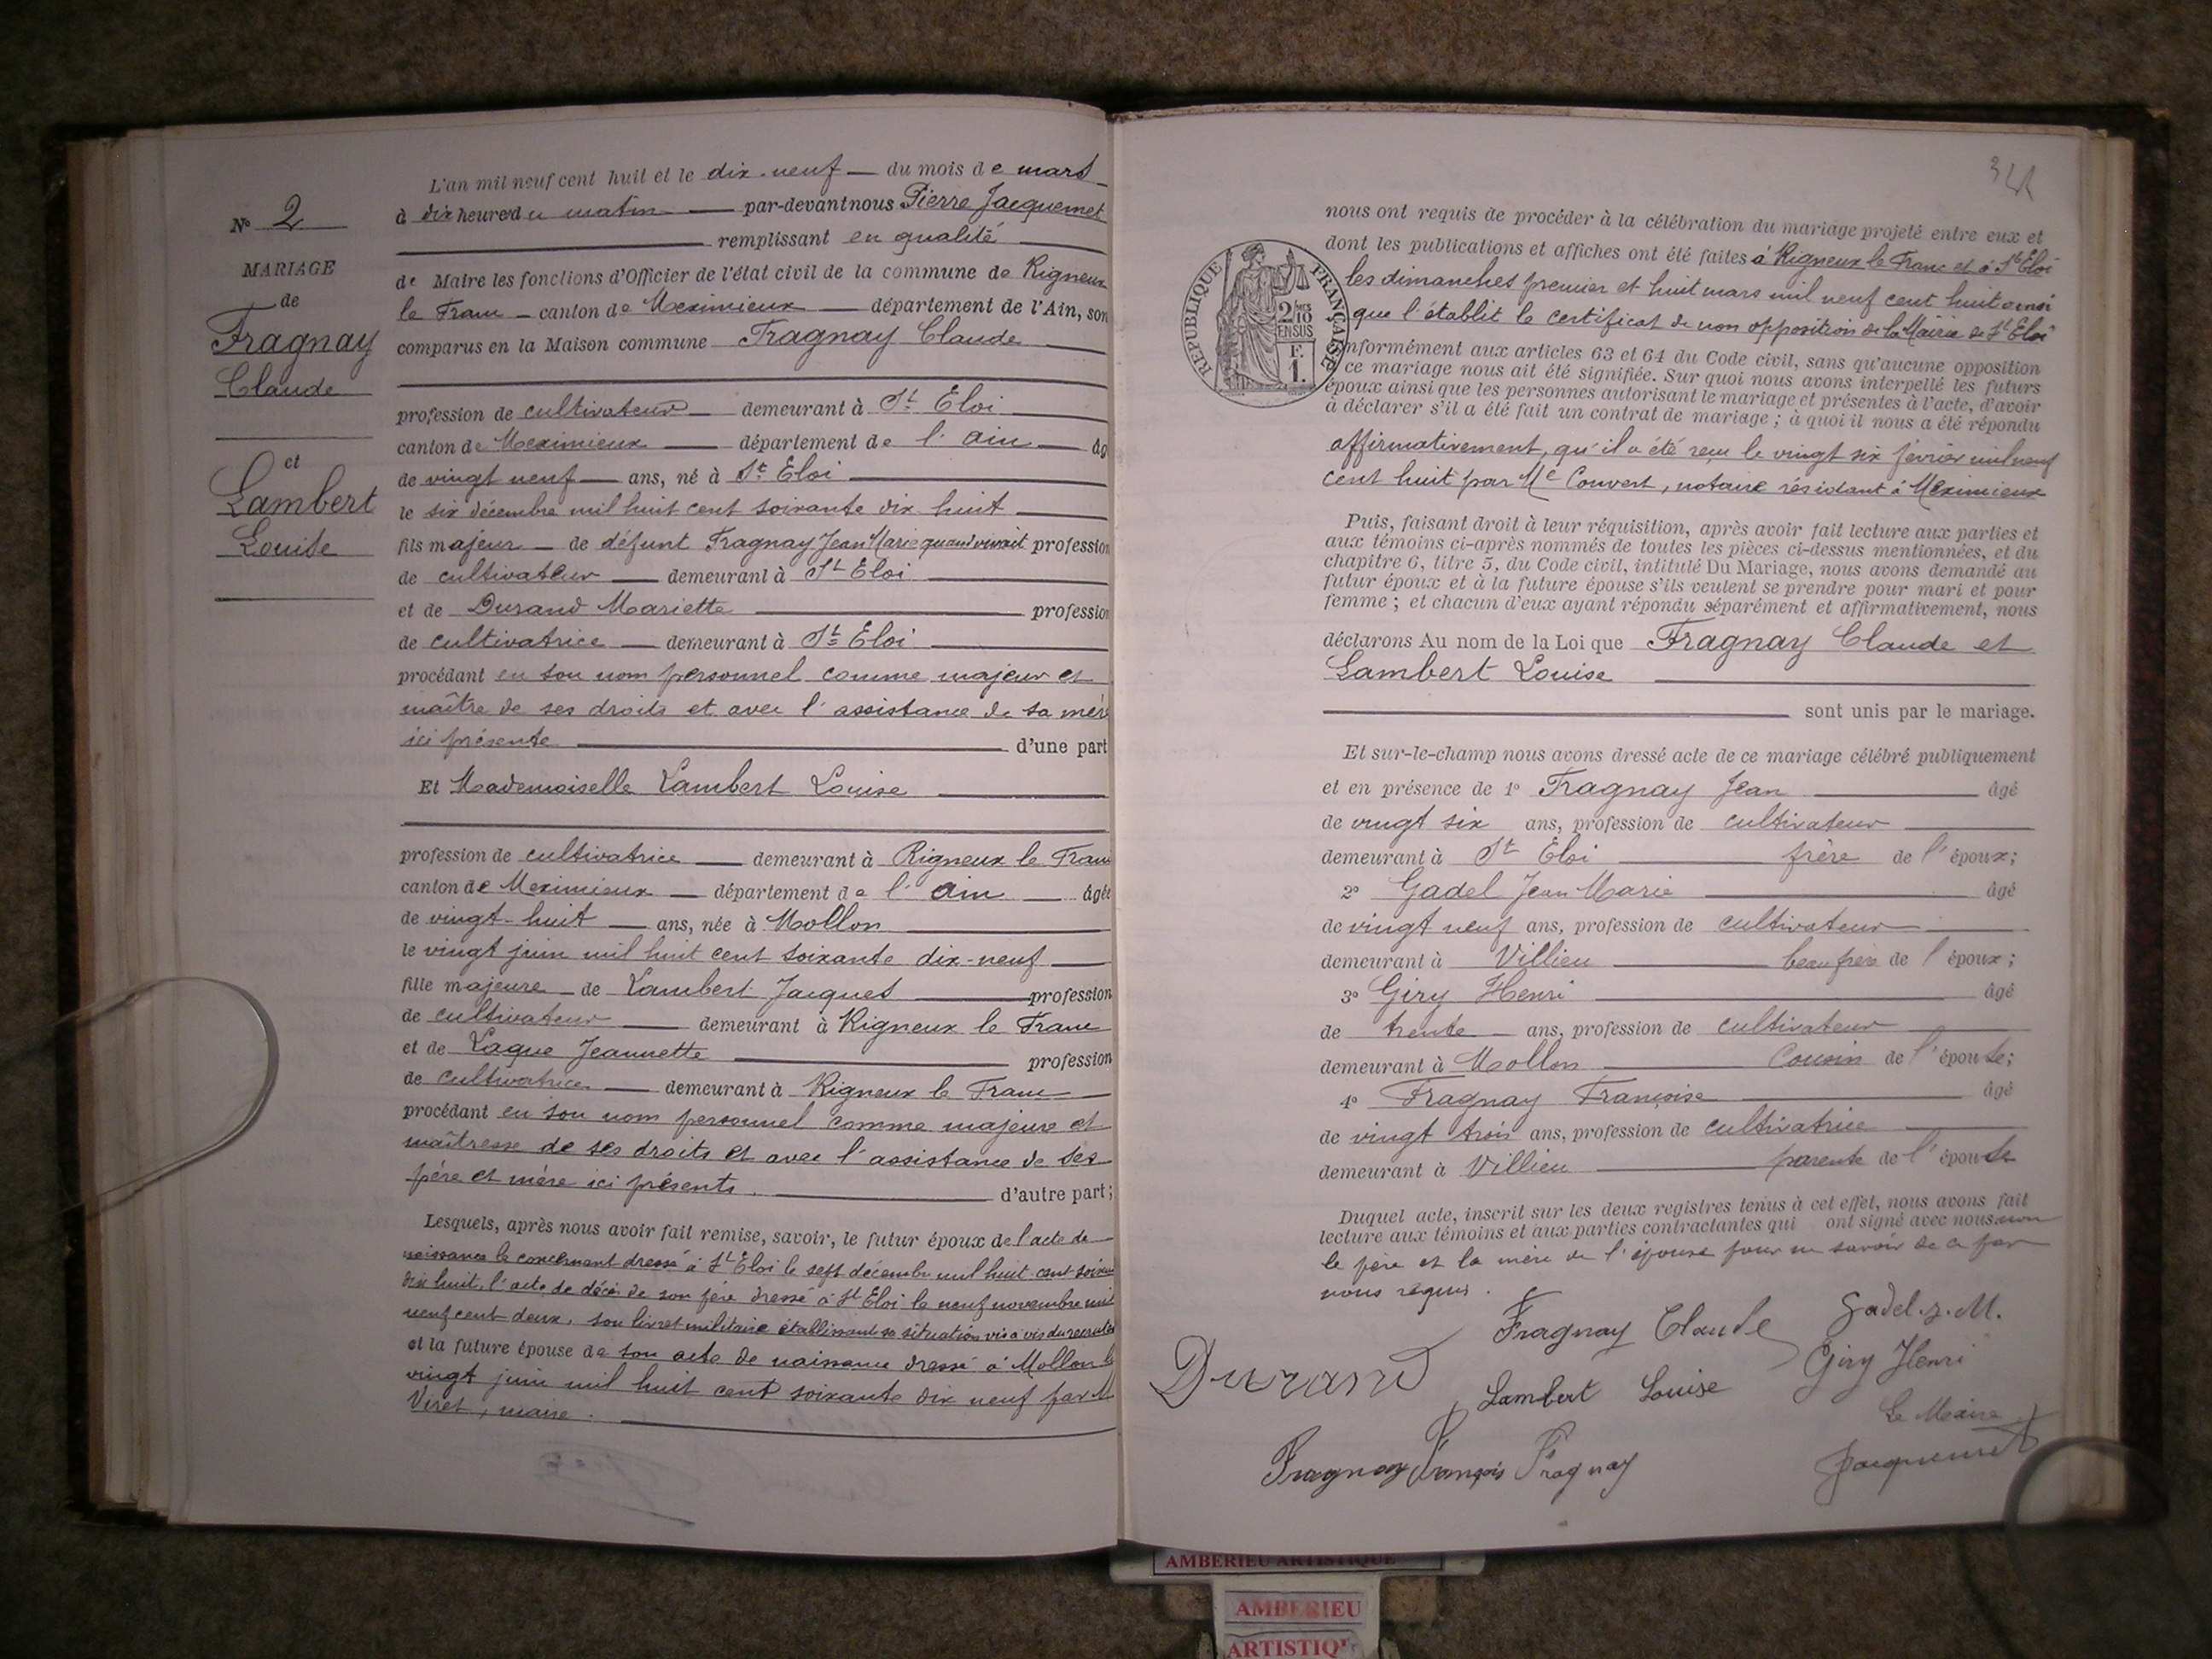 L'an mil neuf cent huit et le dix-neuf du mois de mars
à dix heures du matin par-devant nous Pierre Jacquemet
remplissant en qualité
de Maire les fonctions d'Officier de l'état civil de la commune de Rigneux
le Franc canton de Meximieux département de l'Ain, son
comparus en la Maison commune Fragnay Claude
profession de cultivateur demeurant à St Eloi
canton de Meximieux département de l'ain âg
de vingt neuf ans, né à St Eloi
le six décembre mil huit cent soixante dix huit
fils majeur de défunt Fragnay Jean Marie quand vivait profession
de cultivateur demeurant à St Eloi
et de Durand Mariette profession
de cultivatrice demeurant à St Eloi
procédant en son nom personnel comme majeur et
maître de ses droits et avec l'assistance de sa mère
ici présente d'une part
Et Mademoiselle Lambert Louise
profession de cultivatrice demeurant à Rigneux le Franc
canton de Meximieux département de l'ain âgée
de vingt-huit ans, née à Mollon
le vingt juin mil huit cent soixante dix-neuf
fille majeure de Lambert Jacques profession
de cultivateur demeurant à Rigneux le Franc
et de Laque Jeannette profession
de cultivatrice demeurant à Rigneux le Franc
procédant en son nom personnel comme majeure et
maîtresse de ses droits et avec l'assistance de ses
père et mère ici présents. d'autre part;
Lesquels, après nous avoir fait remise, savoir, le futur époux de l'acte de
naissance le concernant dressé à St Eloi le sept décembre mil huit cent soixante
dix huit, l'acte de décès de son père dressé à St Eloi le neuf novembre mil
neuf cent deux, son livret militaire établissant sa situation vis à vis du recrute
et la future épouse de son acte de naissance dressé à Mollon le
vingt juin mil huit cent soixante dix neuf par M
Viret, maire.
No 2
MARIAGE
de
Fragnay
Claude
et
Lambert
Louise
nous ont requis de procéder à la célébration du mariage projeté entre eux et
dont les publications et affiches ont été faites à Rigneux le Franc et à St Eloi
les dimanches premier et huit mars mil neuf cent huit ainsi
que l'établit le certificat de non opposition de la Mairie de St Eloi
nformément aux articles 63 et 64 du Code civil, sans qu'aucune opposition
ce mariage nous ait été signifiée. Sur quoi nous avons interpellé les futurs
époux ainsi que les personnes autorisant le mariage et présentes à l'acte, d'avoir
à déclarer s'il a été fait un contrat de mariage; à quoi il nous a été répondu
affirmativement, qu'il a été reçu le vingt six février mil neuf
cent huit par Me Convert, notaire résidant à Meximieux
Puis, faisant droit à leur réquisition, après avoir fait lecture aux parties et
aux témoins ci-après nommés de toutes les pièces ci-dessus mentionnées, et du
chapitre 6, titre 5, du Code civil, intitulé Du Mariage, nous avons demandé au
futur époux et à la future épouse s'ils veulent se prendre pour mari et pour
femme; et chacun d'eux ayant répondu séparément et affirmativement, nous
déclarons Au nom de la Loi que Fragnay Claude et
Lambert Louise
sont unis par le mariage.
Et sur-le-champ nous avons dressé acte de ce mariage célébré publiquement
et en présence de 1° Fragnay Jean âgé
de vingt six ans, profession de cultivateur
demeurant à St Eloi frère de l'époux;
2° Gadel Jean Marie âgé
de vingt neuf ans, profession de cultivateur
demeurant à Villieu beau frère de l'époux;
3° Giry Henri âgé
de trente ans, profession de cultivateur
demeurant à Mollon Cousin de l'épouse;
4° Fragnay Françoise âgé
de vingt trois ans, profession de cultivatrice
demeurant à Villieu parente de l'épouse
Duquel acte, inscrit sur les deux registres tenus à cet effet, nous avons fait
lecture aux témoins et aux parties contractantes qui ont signé avec nous non
le père et la mère de l'épouse pour ne savoir de ce par
nous requis.
Fragnay Claude
Gadel. J. M.
Durand
Giry Henri
Lambert Louise
Le Maire
Fragnay François Fragnay
Jacquemet
RÉPUBLIQUE FRANÇAISE
2/10
EN SUS
F.
1.
AMBERIEU ARTISTIQUE
AMBERIEU
ARTISTIQU